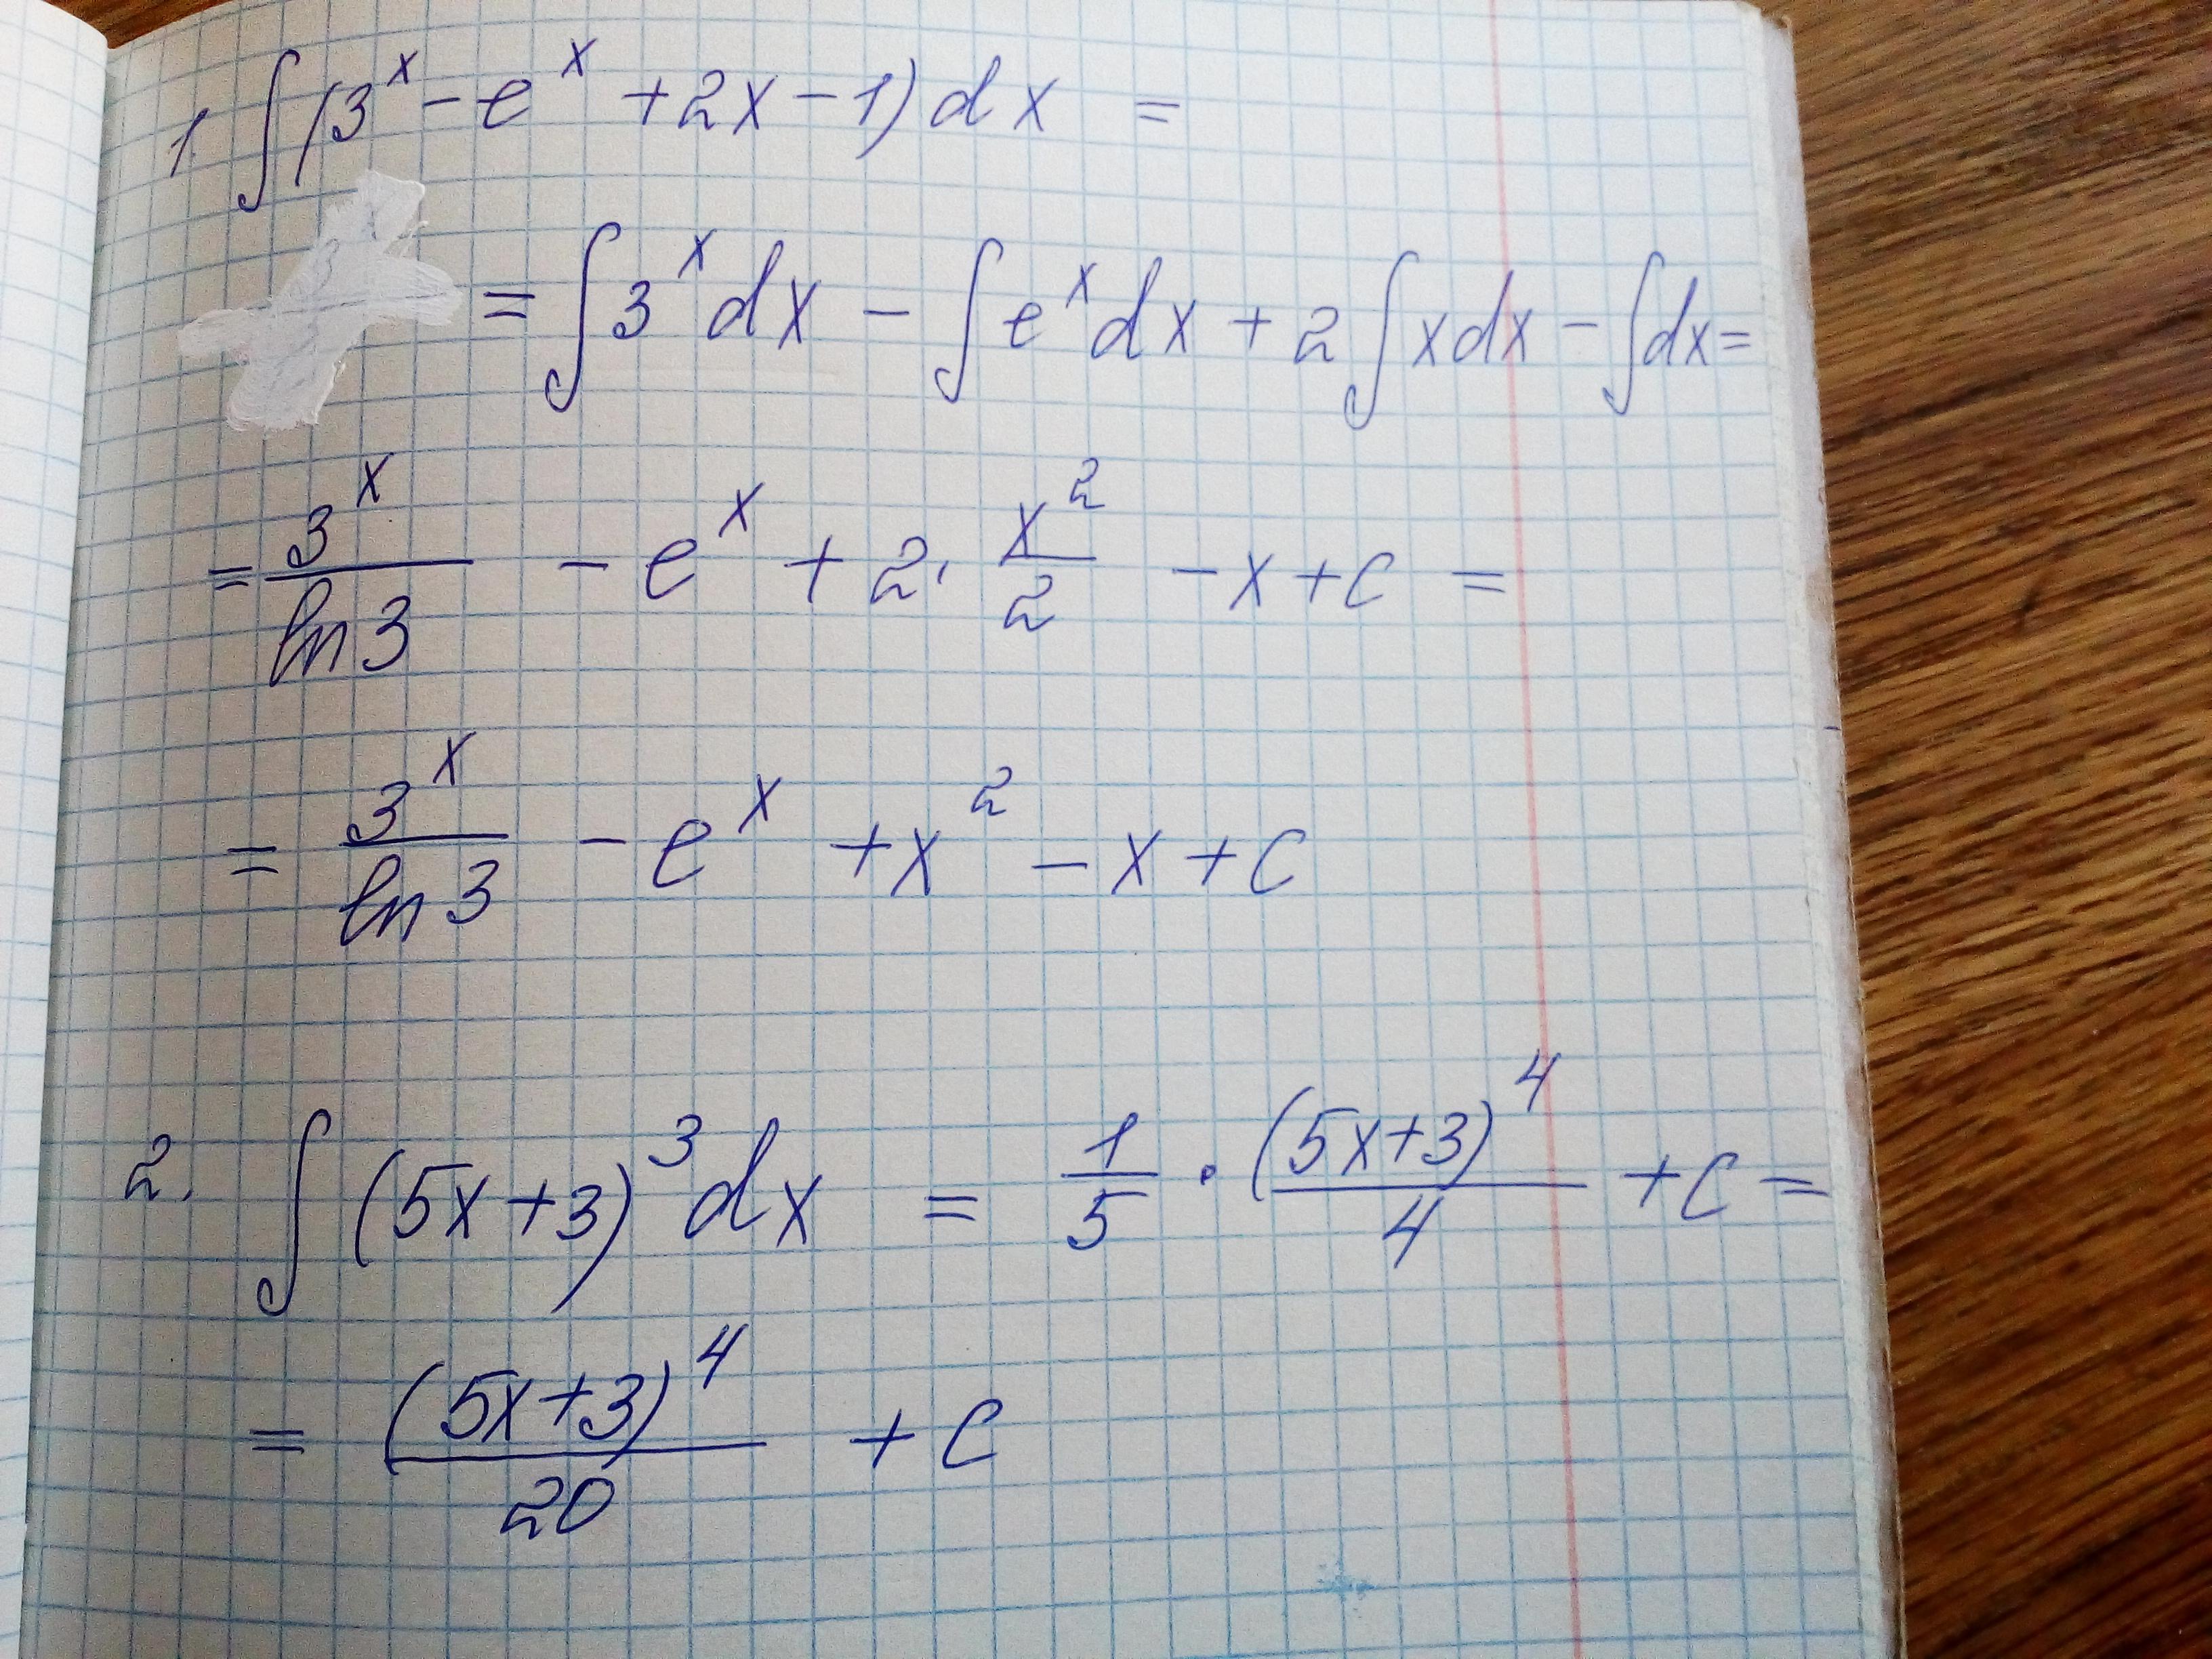 1. ∫(3^x - e^x + 2x - 1) dx =
= ∫3^x dx - ∫e^x dx + 2∫x dx - ∫dx =
= 3^x/ln 3 - e^x + 2 · x^2/2 - x + C =
= 3^x/ln 3 - e^x + x^2 - x + C
2. ∫(5x+3)^3 dx = 1/5 · (5x+3)^4/4 + C =
= (5x+3)^4/20 + C